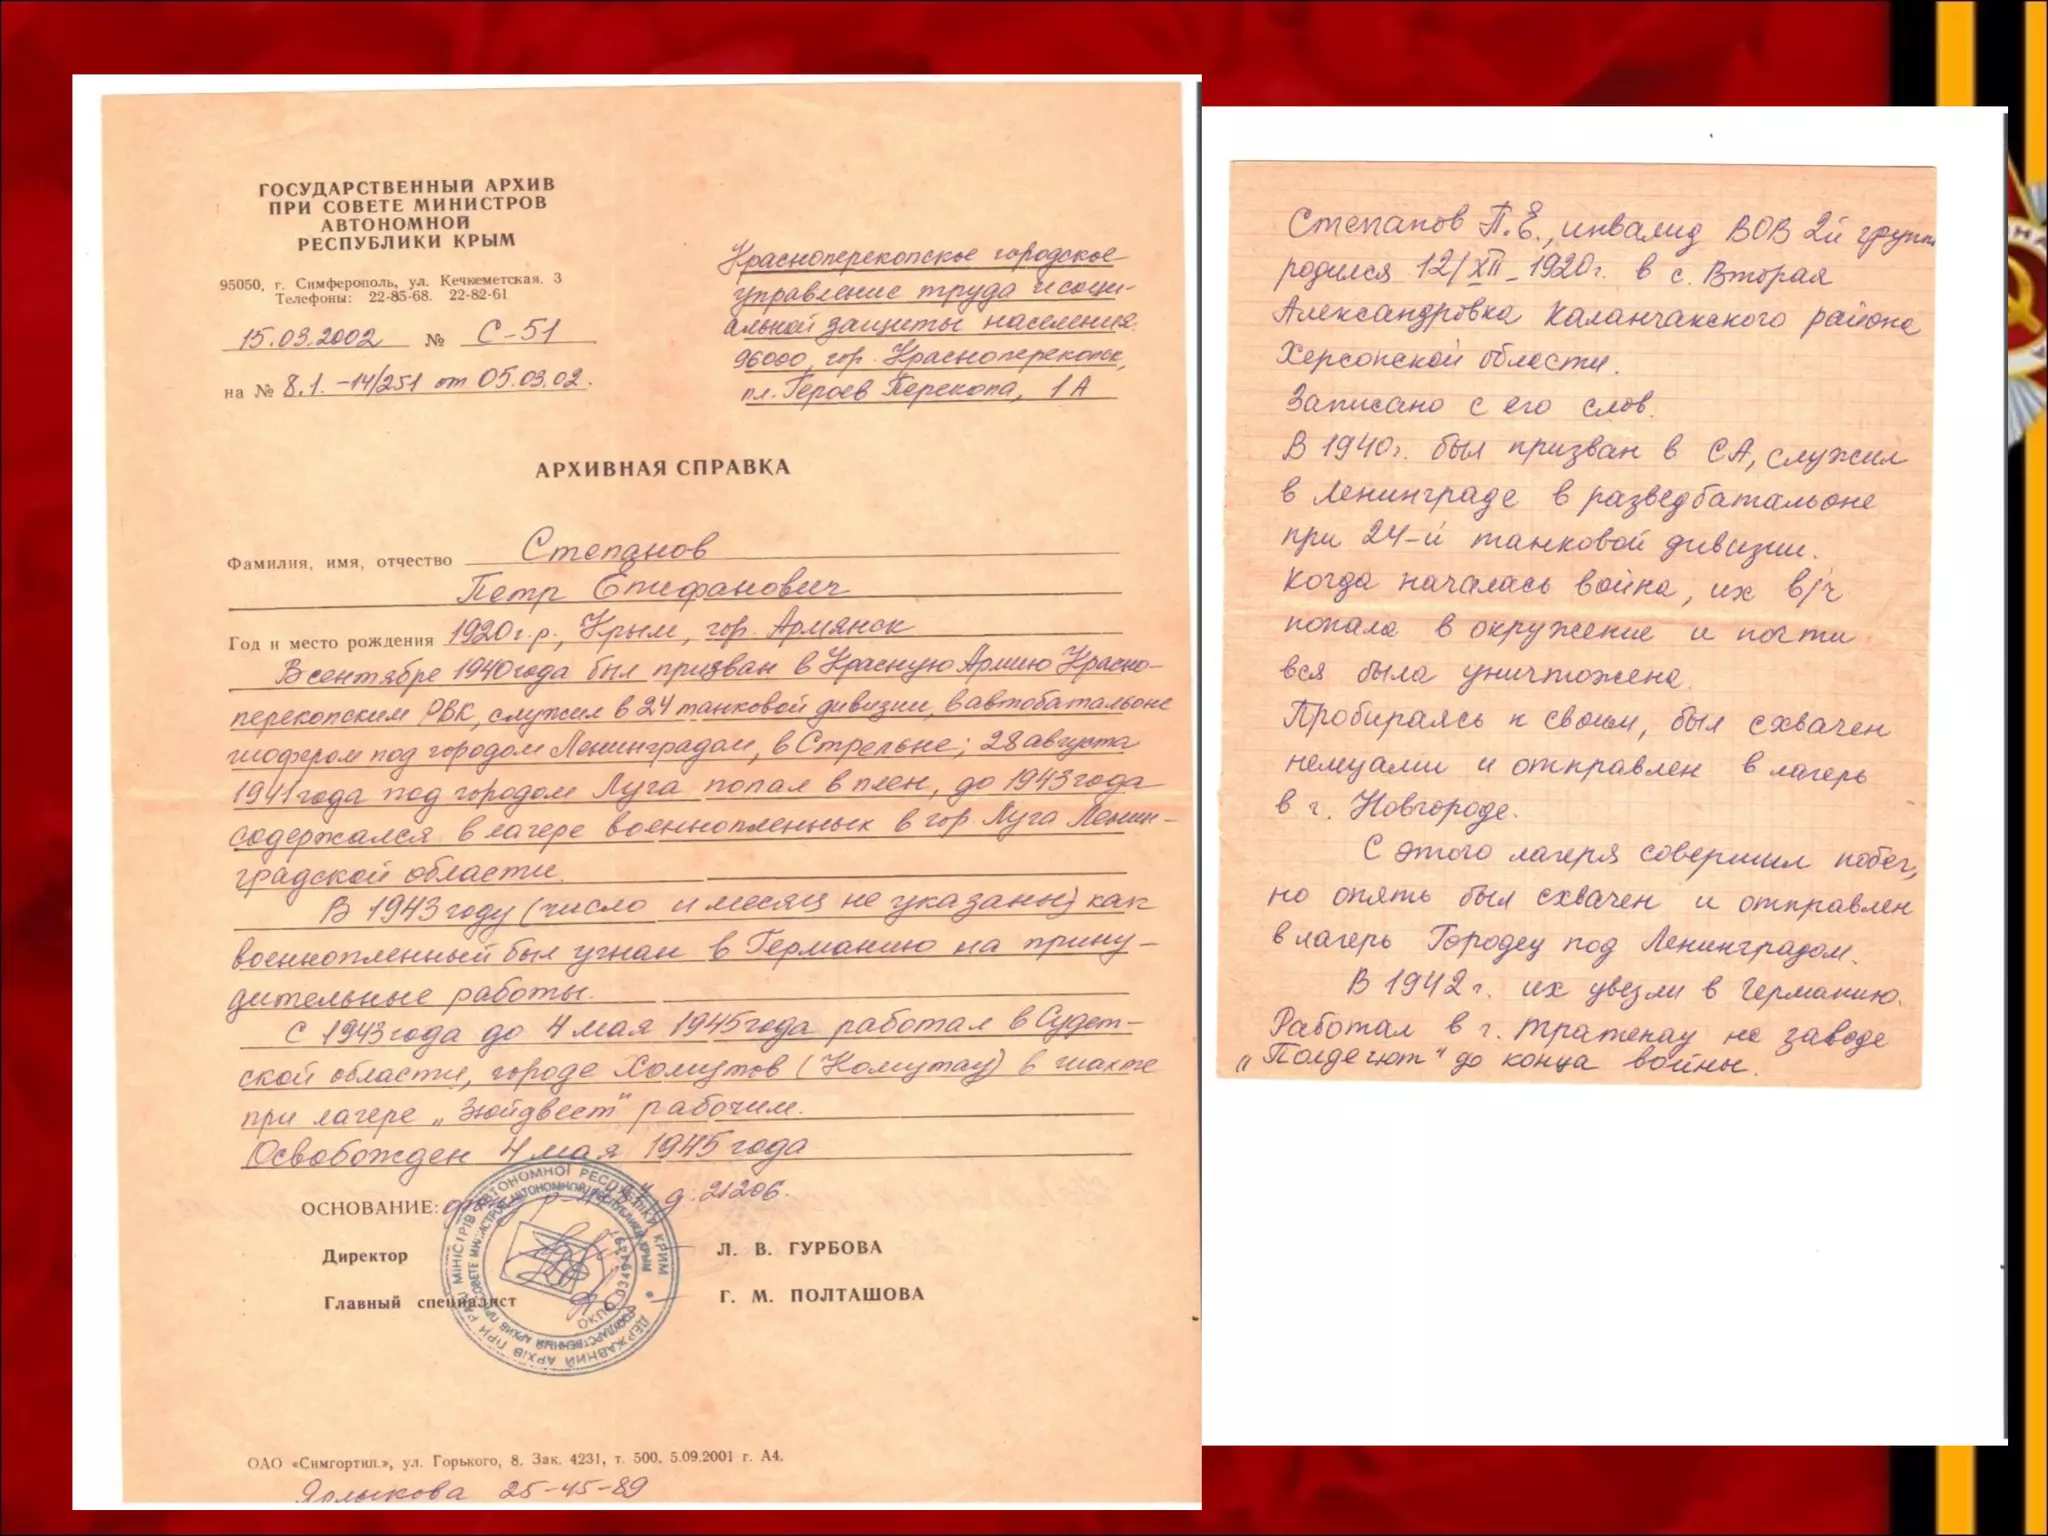 ГОСУДАРСТВЕННЫЙ АРХИВ
ПРИ СОВЕТЕ МИНИСТРОВ
АВТОНОМНОЙ
РЕСПУБЛИКИ КРЫМ
95050, г. Симферополь, ул. Кечкеметская. 3
Телефоны: 22-85-68. 22-82-61
15.03.2002 № С-51
на № 8.1.-14/251 от 05.03.02.
Красноперекопское городское
управление труда и соци-
альной защиты населения.
96000, гор. Красноперекопск,
пл. Героев Перекопа, 1А
АРХИВНАЯ СПРАВКА
Фамилия, имя, отчество Степанов
Петр Епифанович
Год и место рождения 1920 г.р., Крым, гор. Армянск
В сентябре 1940 года был призван в Красную Армию Красно-
перекопским РВК, служил в 24 танковой дивизии, в автобатальоне
шофером под городом Ленинградом, в Стрельне; 28 августа
1941 года под городом Луга попал в плен, до 1943 года
содержался в лагере военнопленных в гор. Луга Ленин-
градской области.
В 1943 году (число и месяц не указаны) как
военнопленный был угнан в Германию на прину-
дительные работы.
С 1943 года до 4 мая 1945 года работал в Судет-
ской области, городе Хомутов (Комутау) в шахте
при лагере „Зюйдвест" рабочим.
Освобожден 4 мая 1945 года
ОСНОВАНИЕ: д. 21206.
Директор Л. В. ГУРБОВА
Главный специалист Г. М. ПОЛТАШОВА
ОАО «Симгортип.», ул. Горького, 8. Зак. 4231, т. 500, 5.09.2001 г. А4.
Ярлыкова 25-45-89
Степанов П.Е., инвалид ВОВ 2й групп
родился 12/XII-1920г. в с. Вторая
Александровка Каланчакского района
Херсонской области.
Записано с его слов.
В 1940г. был призван в СА, служил
в Ленинграде в разведбатальоне
при 24-й танковой дивизии.
Когда началась война, их в/ч
попала в окружение и почти
вся была уничтожена.
Пробираясь к своим, был схвачен
немцами и отправлен в лагерь
в г. Новгороде.
С этого лагеря совершил побег,
но опять был схвачен и отправлен
в лагерь Городец под Ленинградом.
В 1942 г. их увезли в Германию.
Работал в г. Тратенау на заводе
„Полдегют" до конца войны.